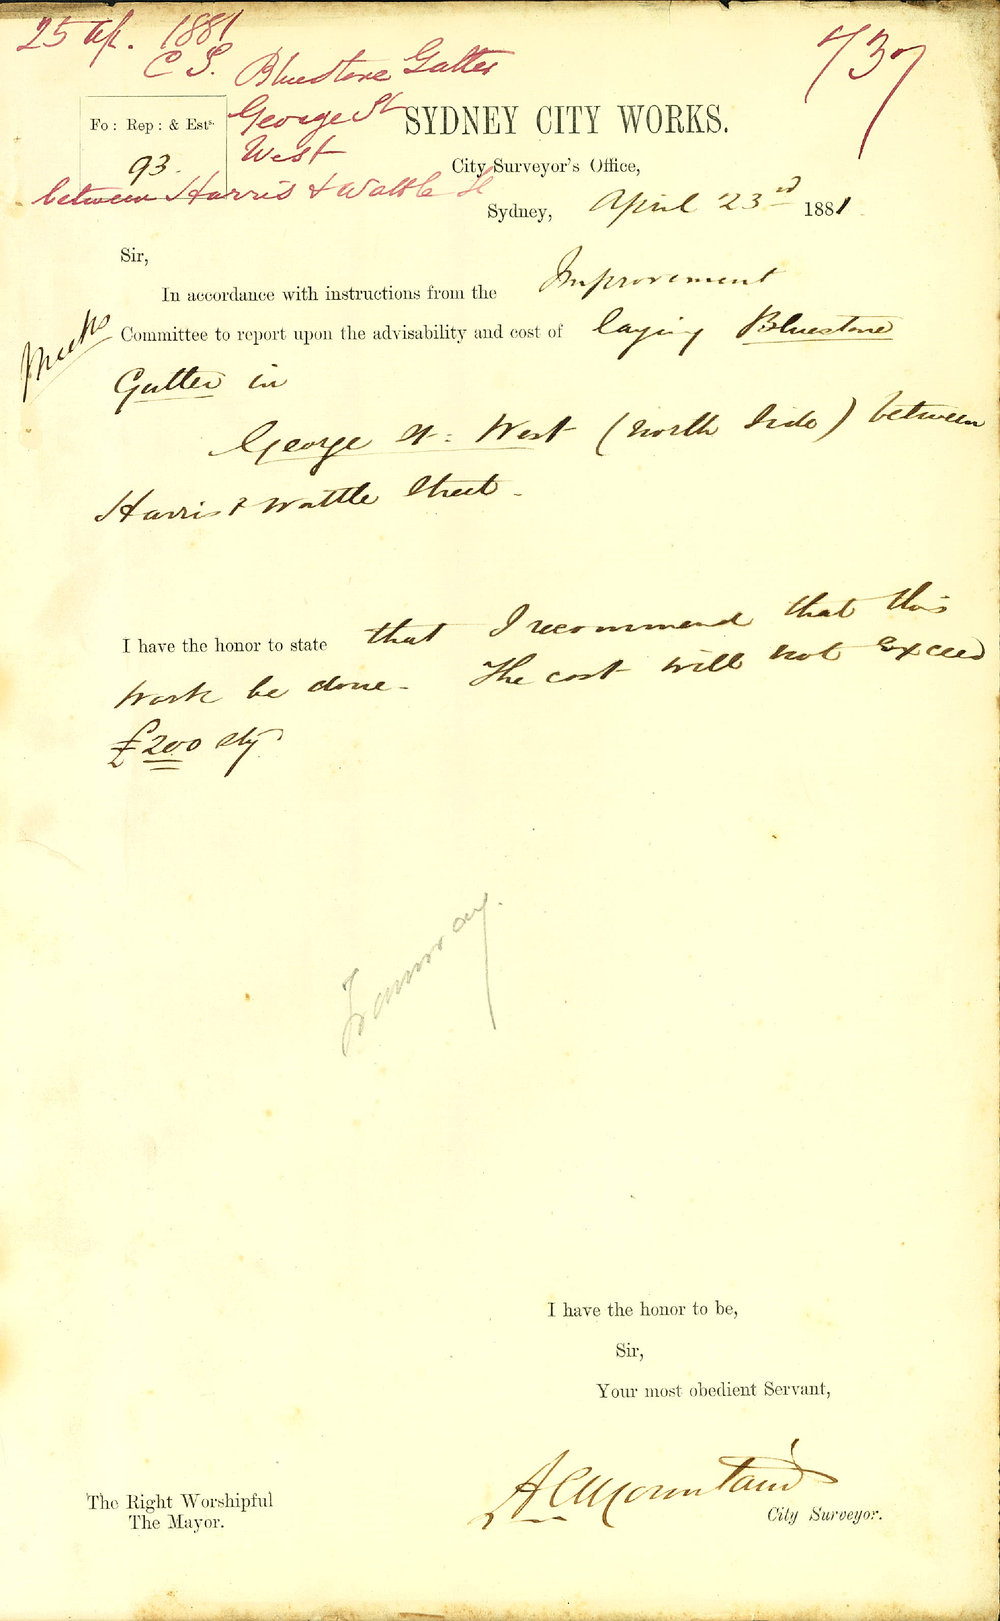 25 Ap. 1881
737
C S. Bluestone Gutter
George St
West
between Harris & Wattle St
Fo: Rep: & Ests.
93.
SYDNEY CITY WORKS.
City Surveyor's Office,
Sydney, April 23rd 1881.
Sir,
In accordance with instructions from the Improvement
Committee to report upon the advisability and cost of laying Bluestone
Gutter in
George St: West (north side) between
Harris & Wattle Street.
I have the honor to state that I recommend that this
work be done. The cost will not exceed
£200 stg
I have the honor to be,
Sir,
Your most obedient Servant,
A C Mountain
City Surveyor.
The Right Worshipful
The Mayor.